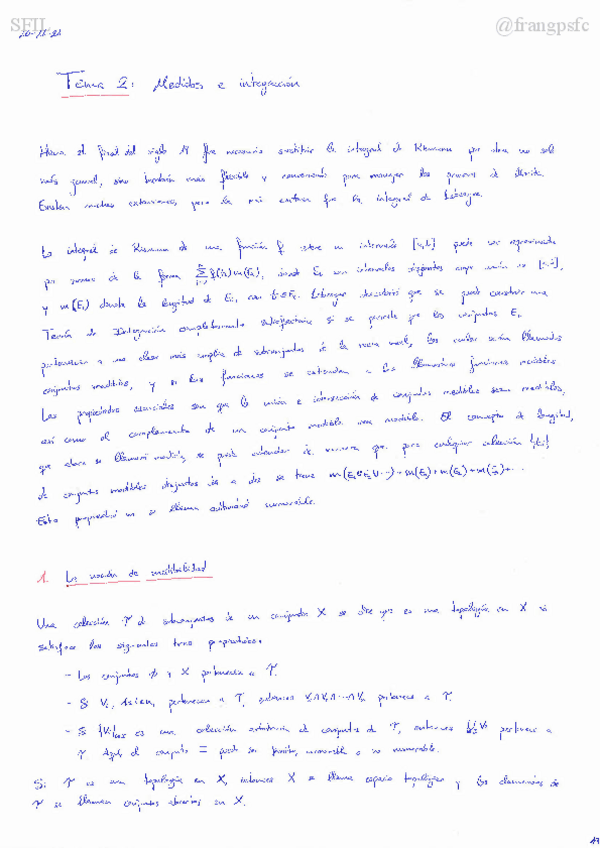 SFIL @frangpsfc
20-12-23
Tema 2: Medidas e integración
Hacia el final del siglo 19 fue necesario sustituir la integral de Riemann por otra no solo
más general, sino también más flexible y conveniente para manejar los procesos de límite.
Existían muchas extensiones, pero la más exitosa fue la integral de Lebesgue.
La integral de Riemann de una función f sobre un intervalo [a,b] puede ser aproximada
por sumas de la forma f(ti) m(Ei), donde Ei son intervalos disjuntos cuya unión es [a,b],
y m(Ei) denota la longitud de Ei, con ti∈Ei. Lebesgue descubrió que se puede construir una
Teoría de Integración completamente satisfactoria si se permite que los conjuntos Ei
pertenezcan a una clase más amplia de subconjuntos de la recta real, los cuales serán llamados
conjuntos medibles, y si las funciones se extienden a las llamadas funciones medibles.
Las propiedades esenciales son que la unión e intersección de conjuntos medibles sean medibles,
así como el complemento de un conjunto medible sea medible. El concepto de longitud,
que ahora se llamará medida, se puede extender de manera que para cualquier colección {Ei}
de conjuntos medibles disjuntos dos a dos se tiene m(E1∪E2∪···)=m(E1)+m(E2)+m(E3)+···
Esta propiedad se llama aditividad numerable.
1. La noción de medibilidad
Una colección τ de subconjuntos de un conjunto X se dice que es una topología en X si
satisface las siguientes tres propiedades:
- Los conjuntos ∅ y X pertenecen a τ.
- Si Vi, 1≤i≤n, pertenecen a τ, entonces V1∩V2∩···∩Vn pertenece a τ.
- Si es una colección arbitraria de conjuntos de τ, entonces pertenece a
τ. Aquí el conjunto I puede ser finito, numerable o no numerable.
Si τ es una topología en X, entonces X se llama espacio topológico y los elementos de
τ se llaman conjuntos abiertos en X.